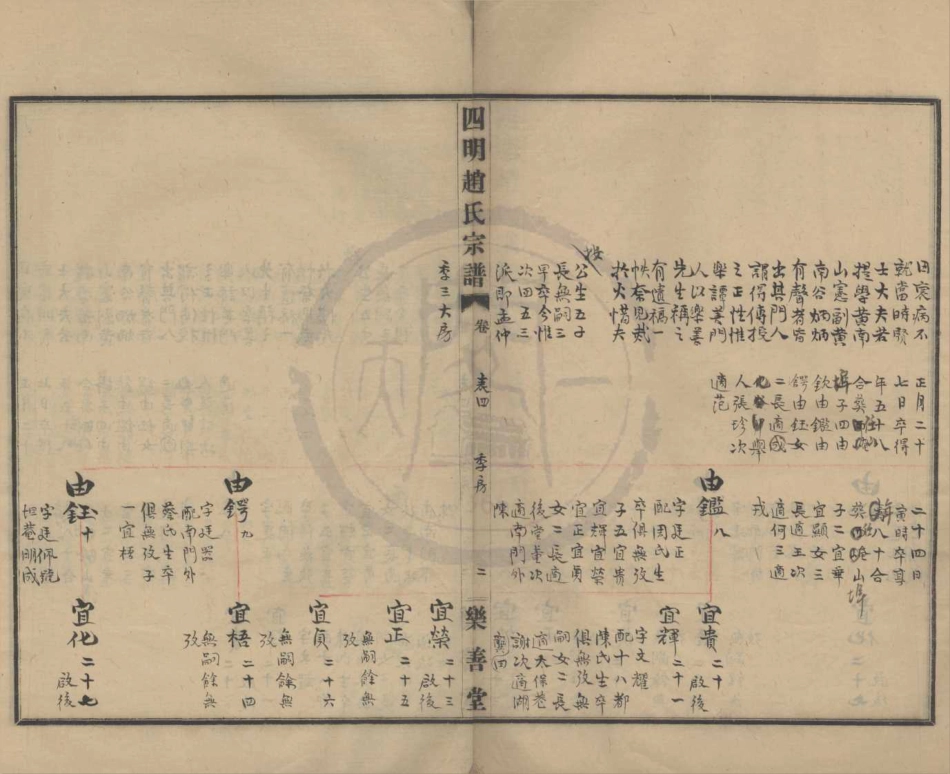 因衰病不
就當時賢
士大夫若
提學黃南
山憲副黃
南谷炳炳
有聲者皆
出其門人
謂得傳授
之正性惟
樂譚美門
人以樂菴
先生稱之
有遺稿一
帙奈見烖
於火惜夫
公生五子
長無嗣三
早卒今惟
次四五三
派即孟仲
季三大房
正月二十
七日卒得
年五十八
合葬
子四由
欽由鑑由
鍔由鈺女
二長適國
人張珍次
適范
二十四日
寅時卒享
八十合
葬山
子二宜華
宜顯女三
長適王次
適何三適
戎
由鑑八
字廷正
配周氏生
卒俱無攷
子五宜貴
宜輝宜榮
宜正宜貞
女二長適
後堂董次
適南門外
陳
由鍔九
字廷器
配南門外
蔡氏生卒
俱無攷子
一宜梧
由鈺十
字廷佩號
坦菴明成
宜貴二十
啟後
宜輝二十一
字文耀
配十八都
陳氏生卒
俱無攷無
嗣女二長
適大保巷
謝次適湖
宜榮二十三
啟後
宜正二十五
無嗣餘無
攷
宜貞二十六
無嗣餘無
攷
宜梧二十四
無嗣餘無
攷
宜化二十七
啟後
四明趙氏宗譜
卷
表四
季房
二
樂善堂